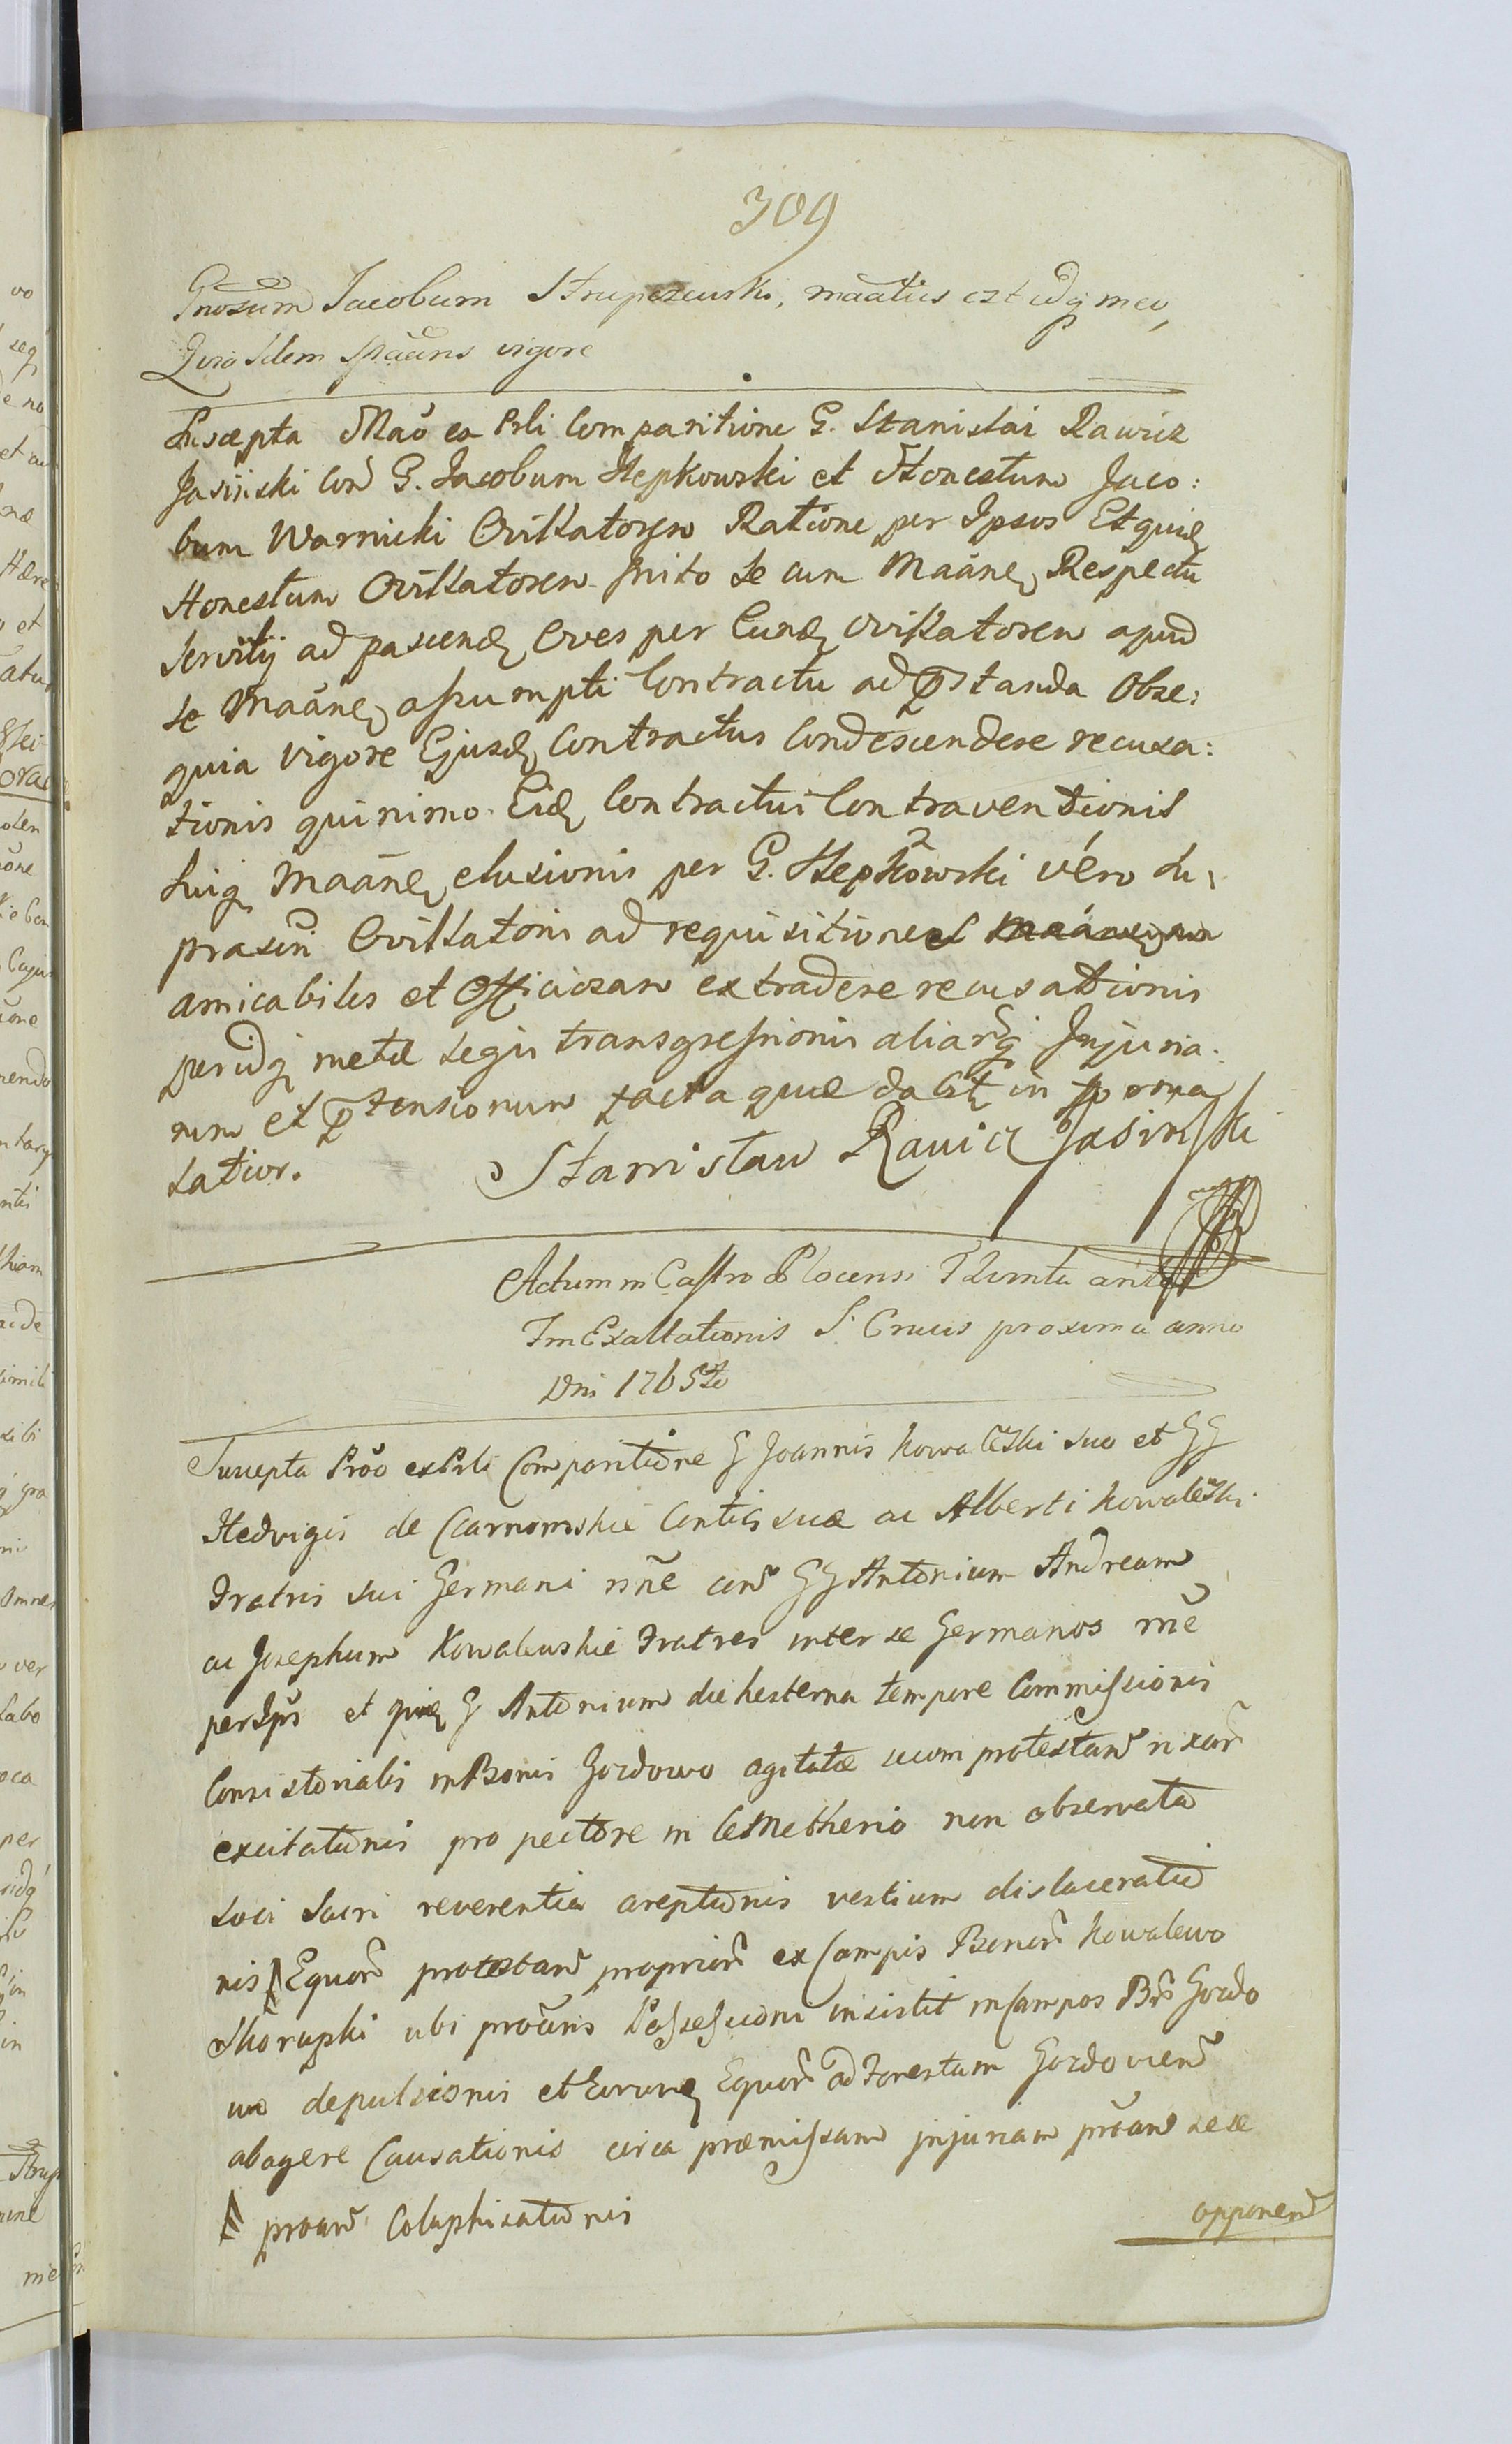 309
Gnosum Jacobum Strupczewski, maãtus est idq meo,
Quosdem spããns vigore
Suscepta Mão ex Prli Comparitione G. Stanislai Rawicz
Jasinski Con G. Jacobum Stepkowski et Honestum Jaco:
bum Warnicki Ovillatorem Ratione per Ipsos Et quidę
Honestum Ovillatorem inito se cum Maãnę Respectu
Servitij ad pascendę Oves per Eundę ovillatorem apud
se Maãnę assumpti Contractu ad prstanda Obse:
quia vigore Ejusdę Contractus Condescendere recusa:
tionis quinimo Eidę Contractui Contraventionis
suiq Maãnę elusionis per G. Stepkowski vero su
prascri Ovillatoris ad requisitiones
amicabiles et Officiosam extradere recusationis
peridq metæ legis transgressionis aliarq Injuria:
rum et prtensionum facta quæ dabitę in forma
latior. Stanislaw Rawicz Jasinski
Actum in Castro Plocensi Flumta ante
Fm Exaltationis S. Crucis proxima anno
Dni 1765to
Suscepta Prõo ex Prli Comparitione G Joannis Kowalewski suo et GG
Hedvigis de Czarnomskie Contlis suæ ac Alberti Kowalewski
Fratris sui Germani nñe con GG Antonium Andream
ac Josephum Kowalewskie Fratres inter se Germanos rñe
per Ips et quidę G Antonium die hesterna tempore Commissionis
Consistorialis in Bonis Gozdowo agitatæ secum protestan rixar
excitationis pro pectore in Cemetherio non observata
loci sacri reverentia areptionis vestium dislaceratio
nis Equor protestan proprior ex Campis Bonor Kowalewo
Skorupki ubi protãns Possessioni insistit in Campos Br Gozdo
wo depulsionis et Eorundę Equor ad Forestum Gozdovien
abagere Causationis circa præmissam injuriam protan sese
protan Colaphisationis
opponen